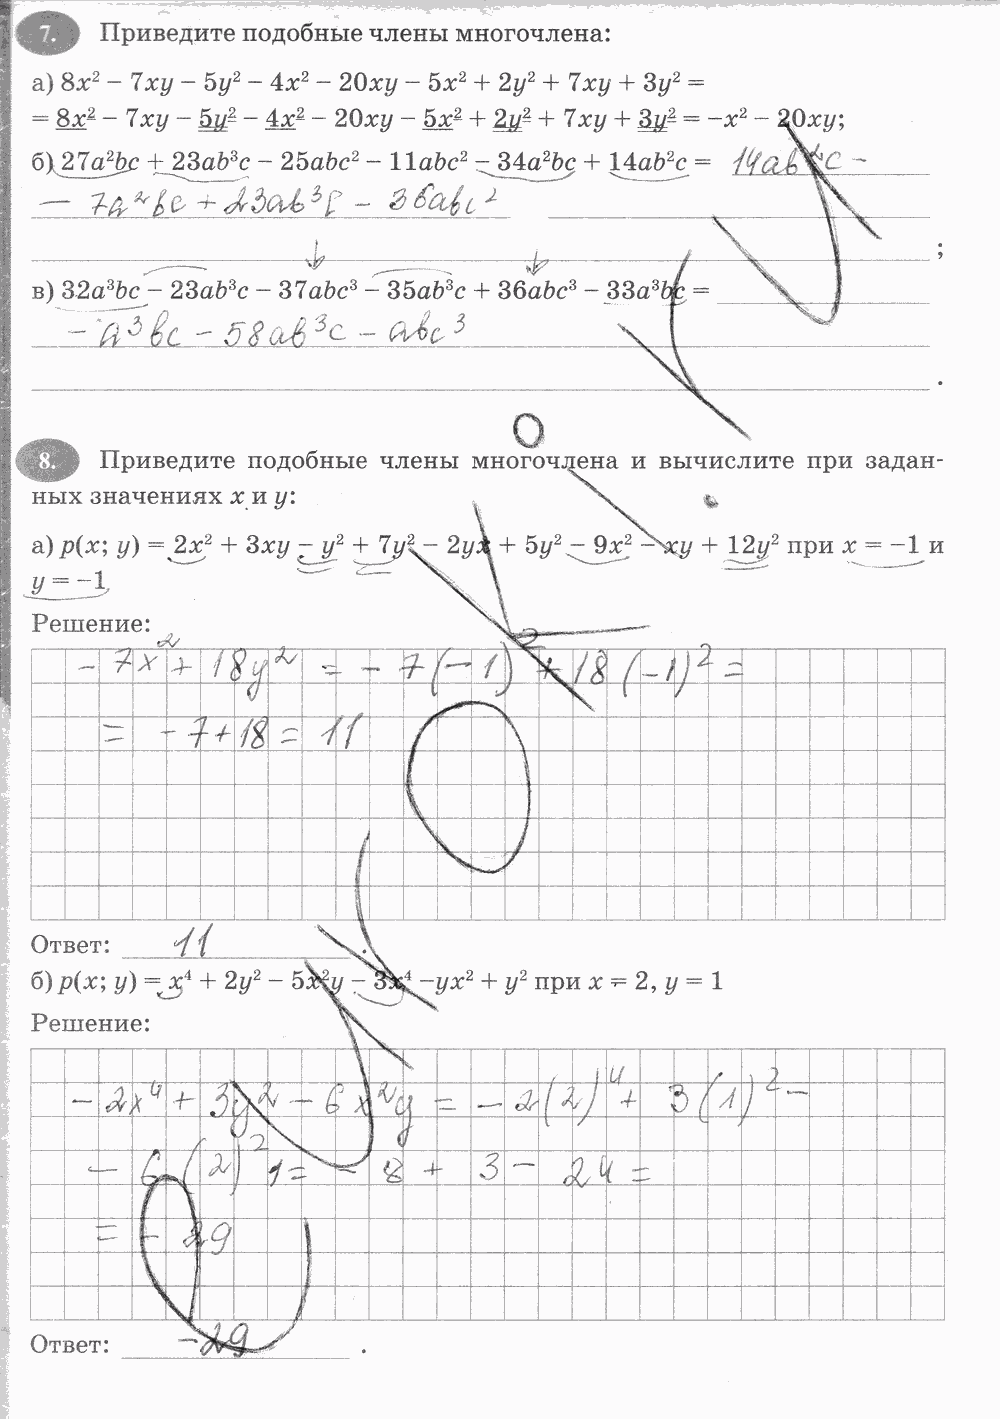 7. Приведите подобные члены многочлена:
а) 8x² − 7xy − 5y² − 4x² − 20xy − 5x² + 2y² + 7xy + 3y² =
= 8x² − 7xy − 5y² − 4x² − 20xy − 5x² + 2y² + 7xy + 3y² = −x² − 20xy;
б) 27a²bc + 23ab³c − 25abc² − 11abc² − 34a²bc + 14ab²c = 14ab²c −
− 7a²bc + 23ab³c − 36abc²
;
в) 32a³bc − 23ab³c − 37abc³ − 35ab³c + 36abc³ − 33a³bc =
− a³bc − 58ab³c − abc³
.
8. Приведите подобные члены многочлена и вычислите при задан-
ных значениях x и y:
а) p(x; y) = 2x² + 3xy − y² + 7y² − 2yx + 5y² − 9x² − xy + 12y² при x = −1 и
y = −1
Решение:
− 7x² + 18y² = − 7(−1)² + 18(−1)² =
= −7+18 = 11
Ответ: 11 .
б) p(x; y) = x⁴ + 2y² − 5x²y − 3x⁴ −yx² + y² при x = 2, y = 1
Решение:
− 2x⁴ + 3y² − 6x²y = − 2(2)⁴ + 3(1)² −
− 6 (2)² 1 = − 8 + 3 − 24 =
= − 29
Ответ: −29 .